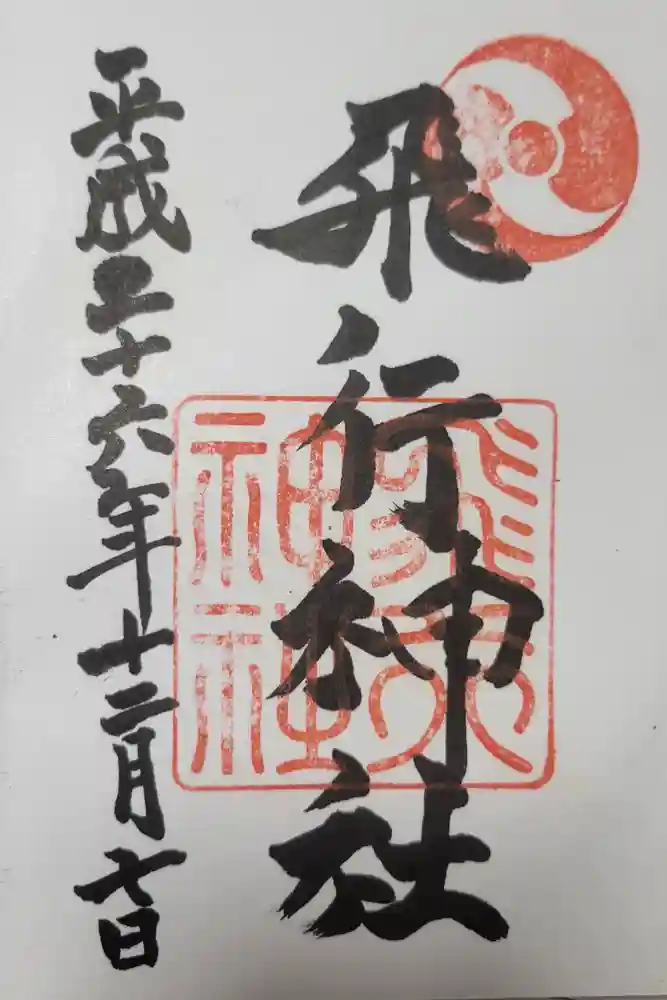 飛行神社
飛行
神社
平成二十六年十二月七日